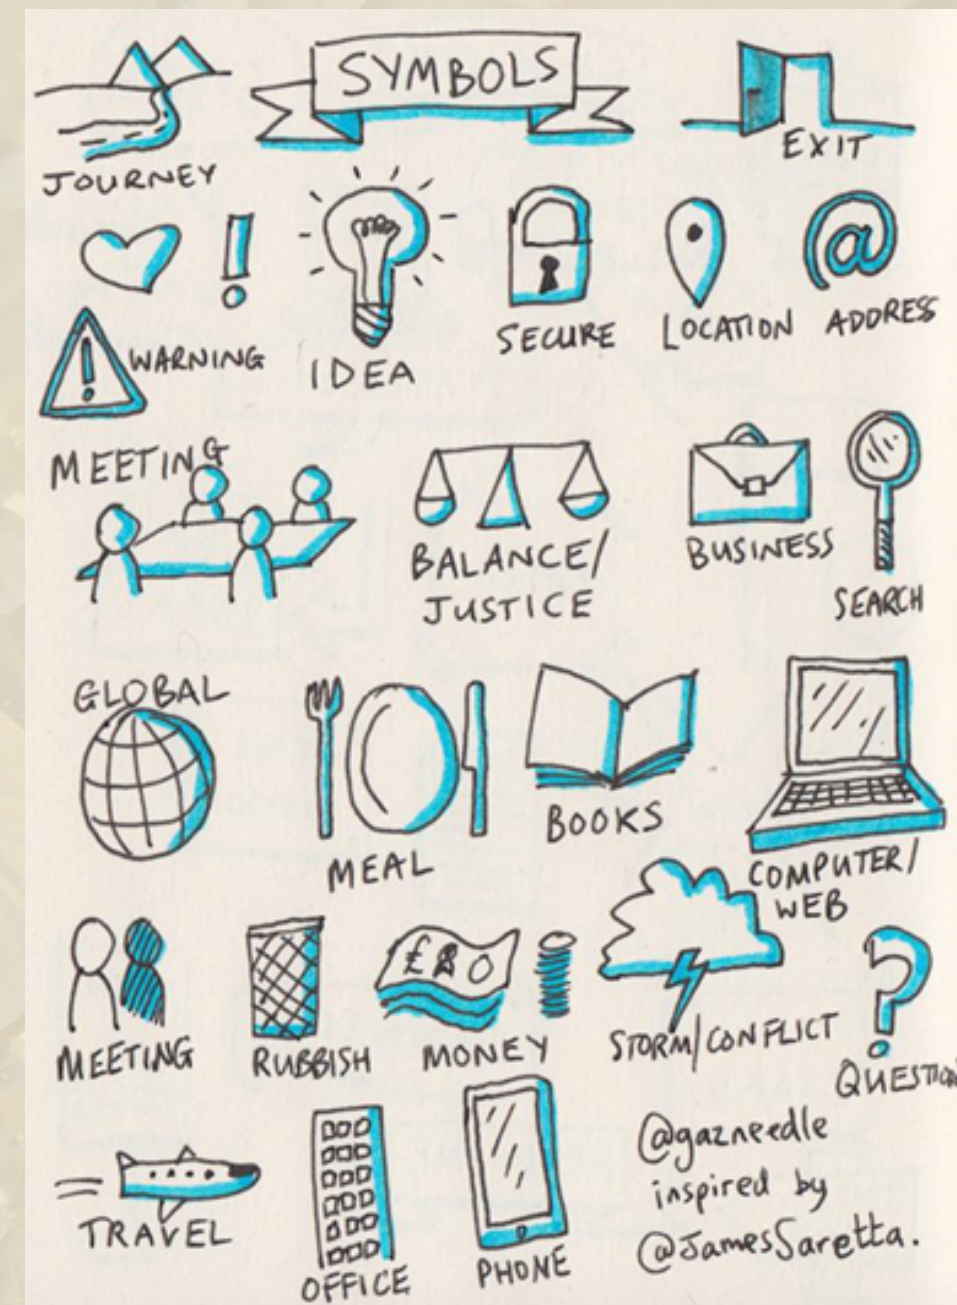 SYMBOLS
JOURNEY
EXIT
!
WARNING
!
IDEA
SECURE
LOCATION
@
ADDRESS
MEETING
BALANCE/
JUSTICE
BUSINESS
SEARCH
GLOBAL
MEAL
BOOKS
COMPUTER/
WEB
MEETING
RUBBISH
£
MONEY
STORM/CONFLICT
?
QUESTION
TRAVEL
OFFICE
PHONE
@gazneedle
inspired by
@JamesSaretta.